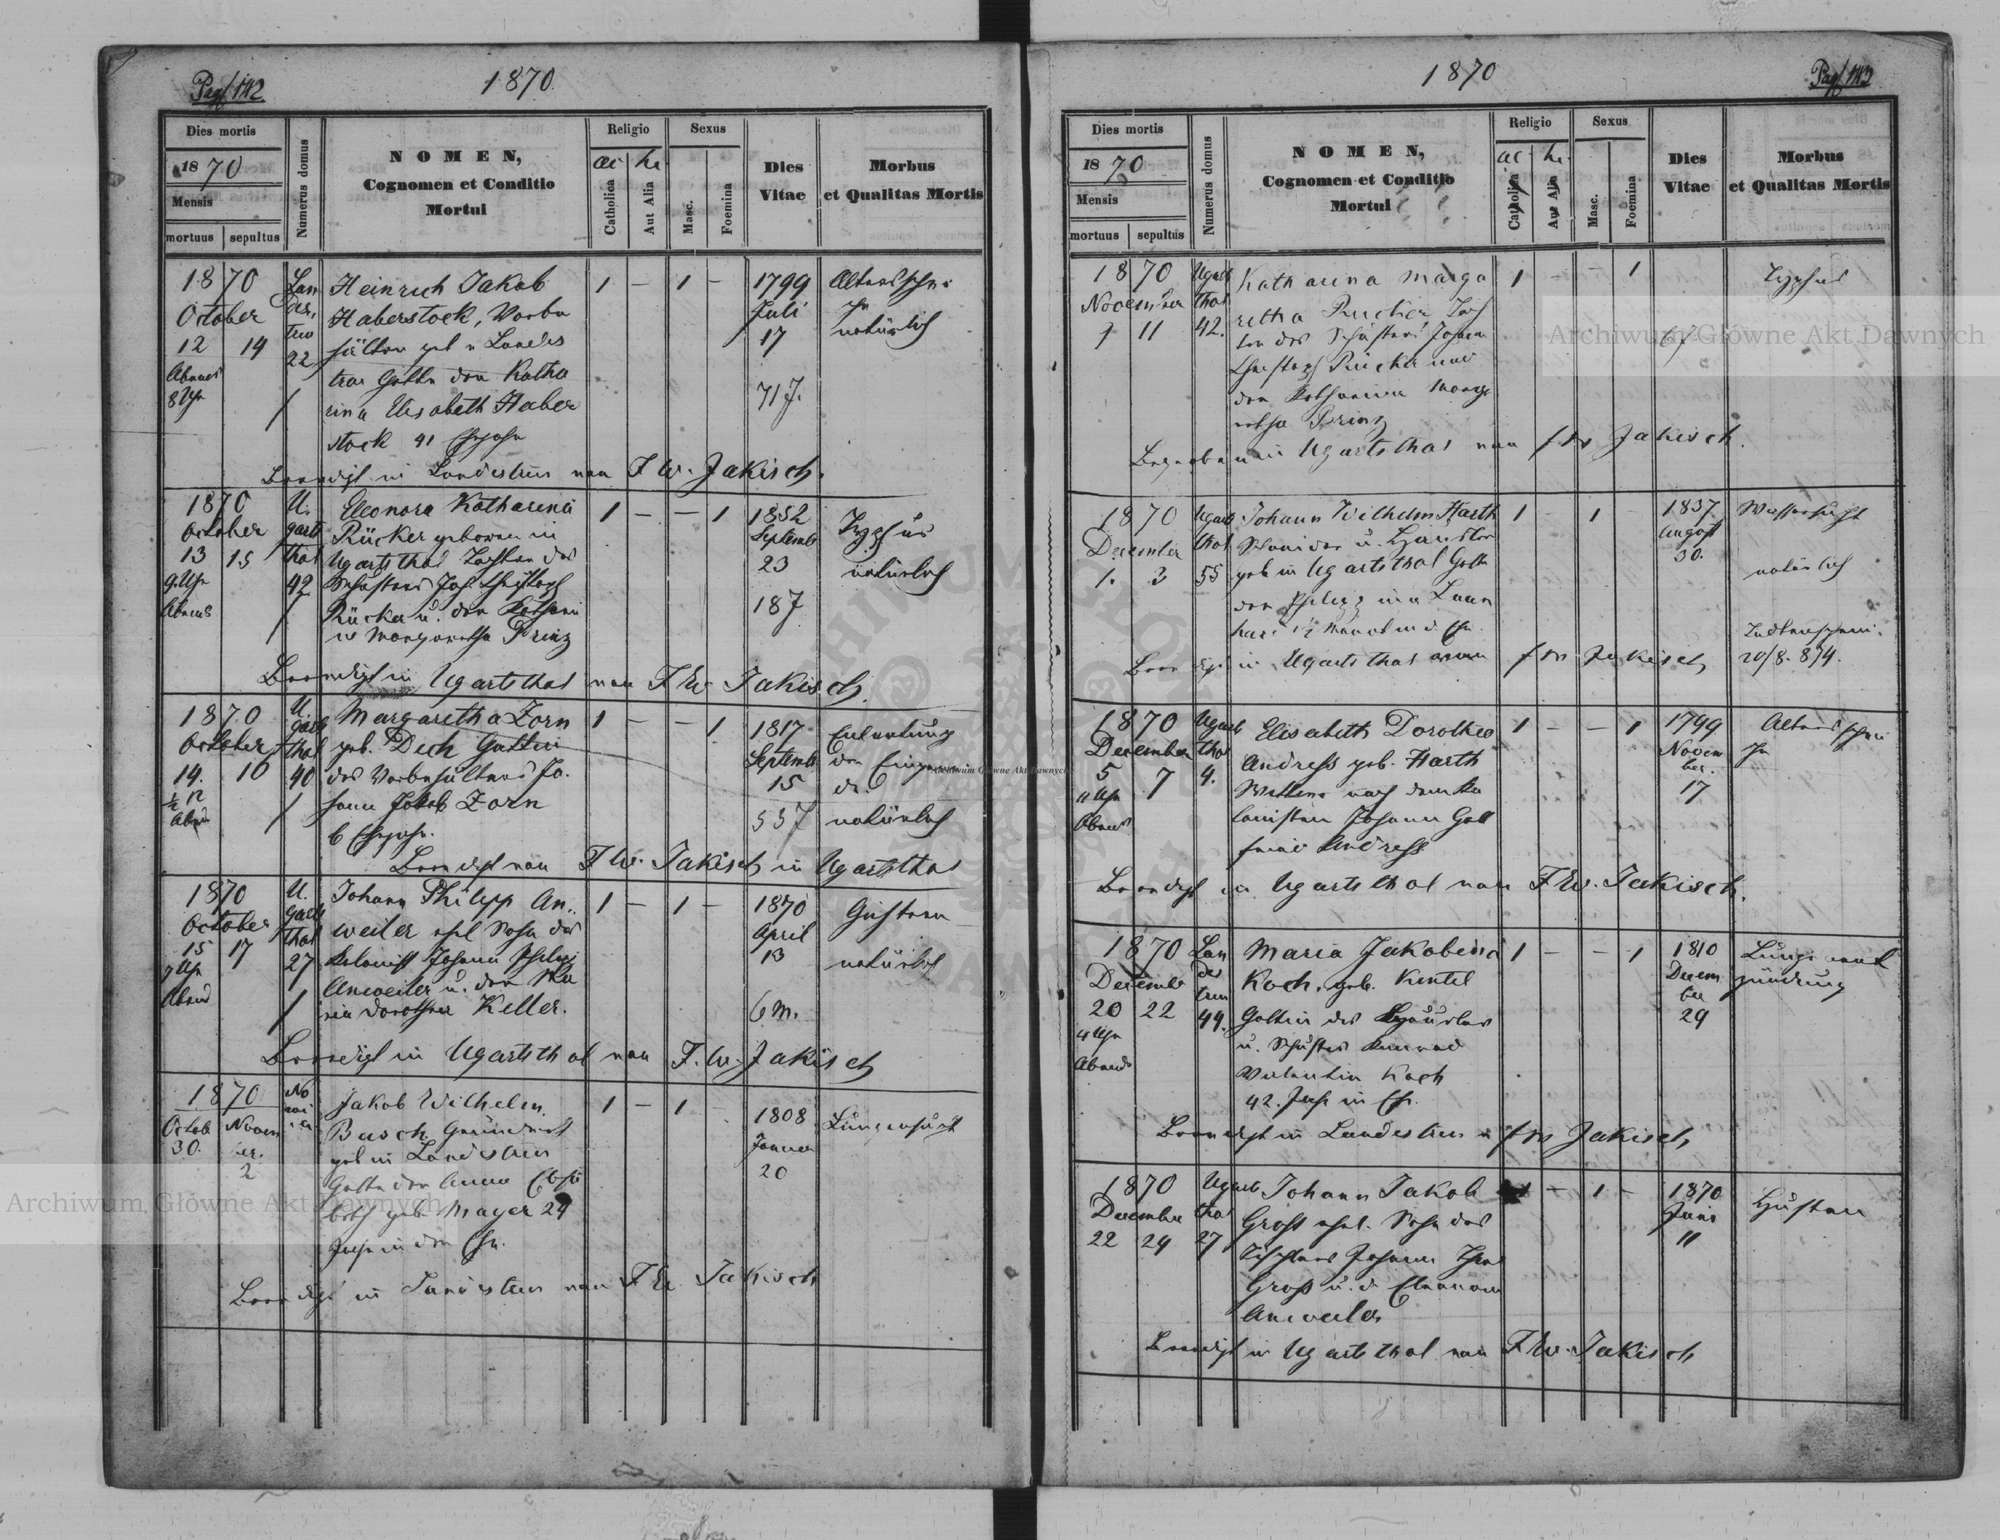 Pag 142
1870
Dies mortis
1870
Mensis
mortuus
sepultus
Numerus domus
NOMEN,
Cognomen et Conditio
Mortui
Religio
ac
hc
Catholica
Aut Alia
Sexus
Masc.
Foemina
Dies
Vitae
Morbus
et Qualitas Mortis
1870
October
12 14
Abends
8 Uhr
Lan
des
treu
22
Heinrich Jakob
Haberstock, Vorbe
hälter geb in Landes
treu Gatte der Katha
rina Elisabeth Haber
stock 41 Ehejahr
1 — 1 —
1799
Juli
17
71 J.
Altersschwä
che
natürlich
Beerdigt in Landestreu von F. W. Jakisch.
1870
October
13 15
9 Uhr
Abends
U.
garts
thal
42
Eleonora Katharina
Rücker geboren in
Ugartsthal Tochter des
Schusters Joh. Christoph
Rücker u. der Kathari
na Margaretha Prinz
1 — — 1
1852
Septemb
23
18 J
Typhus
natürlich
Beerdigt in Ugartsthal von F. W. Jakisch
1870
October
14. 16
½ 12
Abends
U.
garts
thal
40
Margaretha Zorn
geb. Dech Gattin
des Vorbehälters Jo.
hann Jakob Zorn
6 Ehejahr.
1 — — 1
1817
Septemb
15
53 J
der Eingewei
de.
natürlich
Beerdigt von F. W. Jakisch in Ugartsthal
1870
October
15 17
7 Uhr
Abend
U.
garts
thal
27
Johann Philipp An.
weiler ehel Sohn des
Kolonist Johann Philipp
Anweiler u. der Ma
ria Dorothea Keller.
1 — 1 —
1870
April
13
6 M.
Husten
natürlich
Beerdigt in Ugartsthal von F. W. Jakisch
1870
Octob Novem
30. ber.
2
Jakob Wilhelm
Busch Grundwirt
geb in Landestreu
Gatte der Anna Elisa
beth geb. Mayer 29
Jahr in der Ehe.
1 — 1 —
1808
Januar
20
Lungensucht
Beerdigt in Landestreu von F. W. Jakisch
Pag 143
1870
Dies mortis
1870
Mensis
mortuus
sepultus
Numerus domus
NOMEN,
Cognomen et Conditio
Mortui
Religio
ac
hc
Catholica
Aut Alia
Sexus
Masc.
Foemina
Dies
Vitae
Morbus
et Qualitas Mortis
1870
November
11
Ugarts
thal
42.
Katharina Marga
retha Rücker Toch
ter des Schusters Johann
Christoph Rücker und
der Katharina Marga
retha Prinz
1 — — 1
Typhus
Begraben in Ugartsthal von F. W. Jakisch.
1870
December
1. 3
Ugarts
thal
55
Johann Wilhelm Harth
Schneider u. Häusler
geb in Ugartsthal Gatte
der Philippina Laun
1 — 1 —
1837
August
30.
Wassersucht
natürlich
Todtenschein.
20/8. 874.
Beerdigt in Ugartsthal von F. W. Jakisch
1870
December
5 7
11 Uhr
Abends
Ugarts
thal
4.
Elisabeth Dorothea
Andreß geb. Harth
Wittwe nach dem Ko
lonisten Johann Gott
fried Andreß
1 — — 1
1799
Novem
ber.
17
Altersschwä
che
Beerdigt in Ugartsthal von F. W. Jakisch.
1870
December
20 22
4 Uhr
Abends
Lan
des
treu
44.
Maria Jakobina
Koch, geb. Kintel
Gattin des Häuslers
u. Schuster Konrad
Valentin Koch
42. Jahr in Ehe.
1 — — 1
1810
Decem
ber
29
Lungenent
zündung
Beerdigt in Landestreu v. F. W. Jakisch
1870
December
22 24
Ugarts
thal
27
Johann Jakob
Groß ehel. Sohn des
Tischlers Johann
Groß u. d. Eleonora
Anweiler
1 — 1 —
1870
Juni
11
Husten
Beerdigt in Ugartsthal von F. W. Jakisch
Archiwum Główne Akt Dawnych
Archiwum Główne Akt Dawnych
Archiwum Główne Akt Dawnych